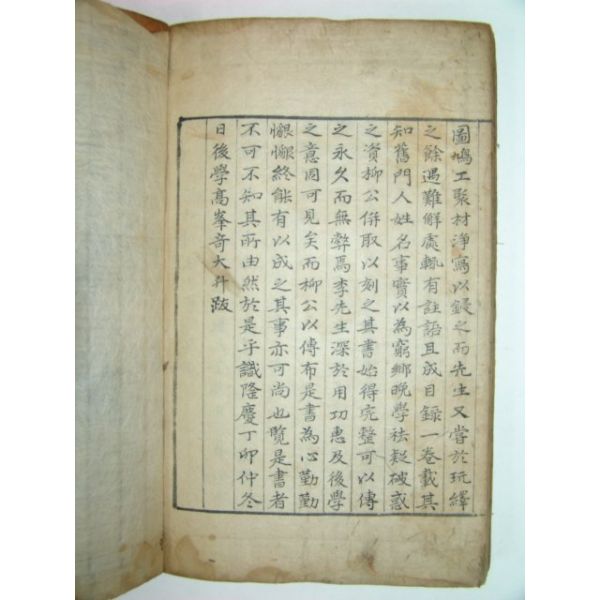 圖鳩工聚材淨寫以録之而先生又嘗於玩繹
之餘遇難解處輒有註語且成目録一卷載其
知舊門人姓名事實以為窮鄉晚學袪疑破惑
之資柳公併取以刻之其書始得完整可以傳
之永久而無弊焉李先生深於用功惠及後學
之意固可見矣而柳公以傳布是書為心勤勤
懇懇終能有以成之其事亦可尚也覽是書者
不可不知其所由然於是乎識隆慶丁卯仲冬
日後學高峯奇大升跋